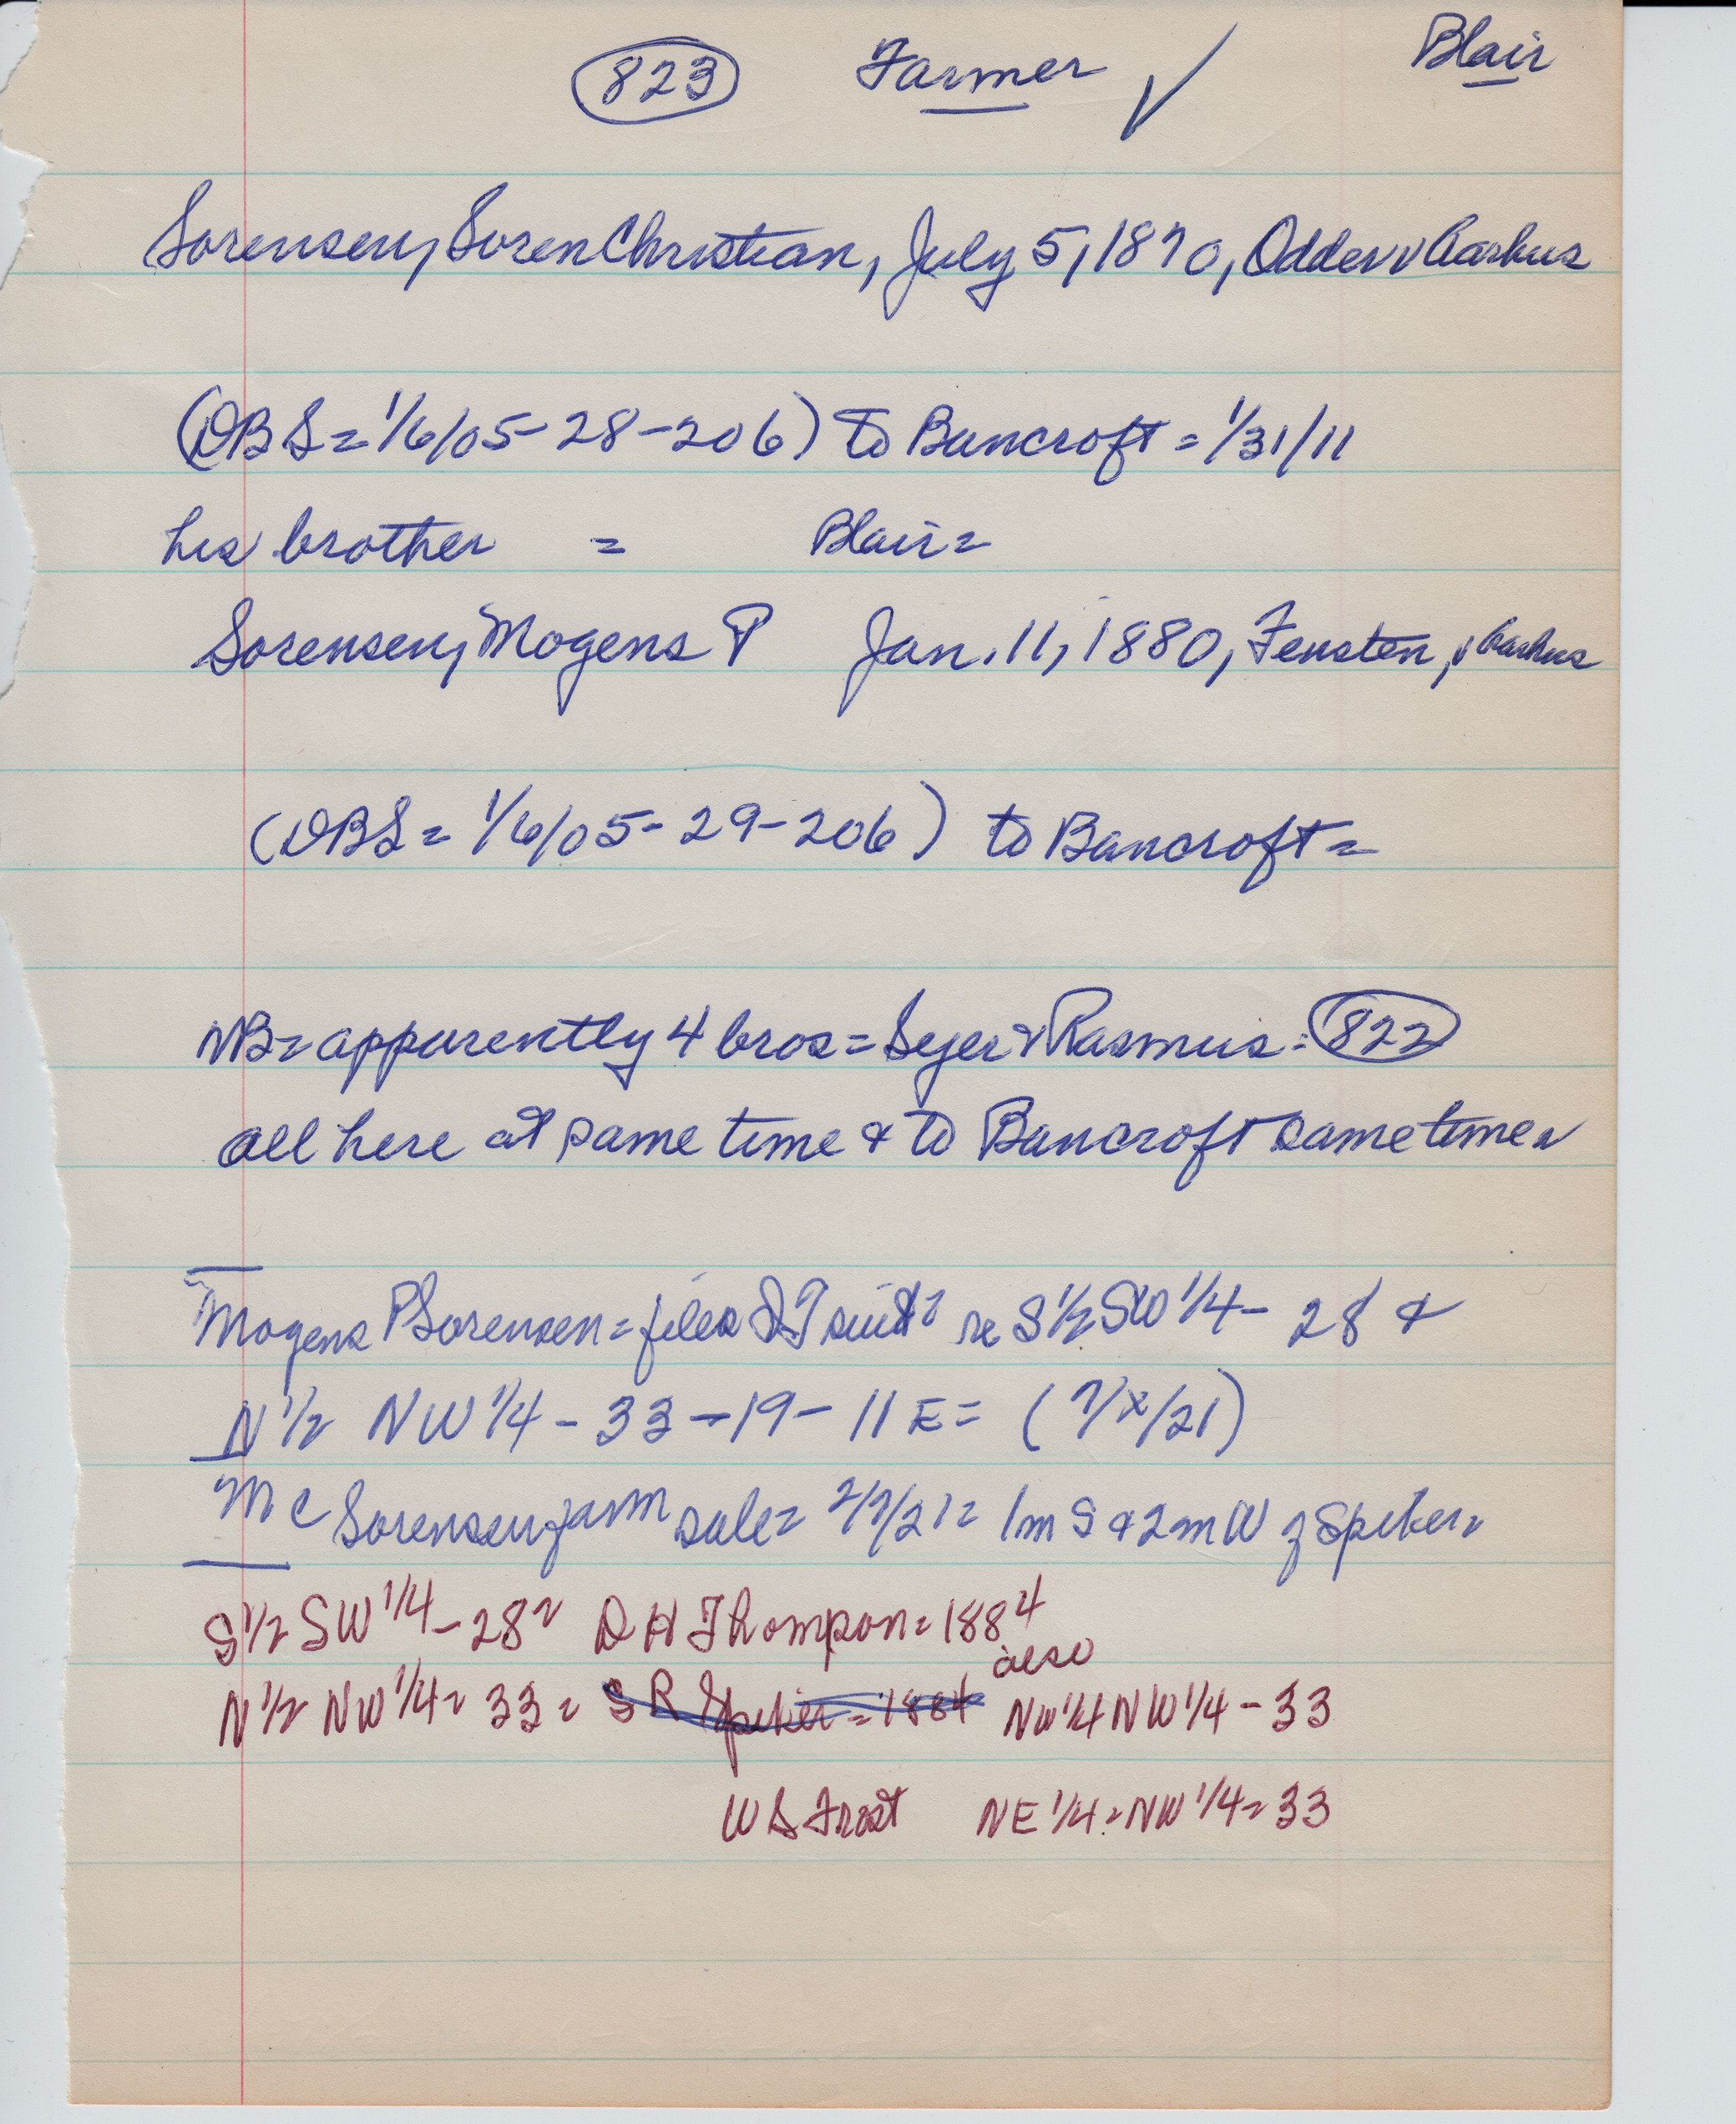 823 Farmer ✓ Blair
Sorensen, Soren Christian, July 5, 1870, Odder v Aarhus
(DBS = 1/6/05 - 28 - 206) to Bancroft = 1/31/11
his brother = Blair =
Sorensen, Mogens P Jan. 11, 1880, Fensten, v Aarhus
(DBS = 1/6/05 - 29 - 206) to Bancroft =
NB = apparently 4 bros = Sejer & Rasmus = 822
all here at same time & to Bancroft same time =
Mogens P Sorensen = files QT suit = re S 1/2 SW 1/4 - 28 &
N 1/2 NW 1/4 - 33 - 19 - 11 E = (7/x/21)
M C Sorensen farm sale = 2/7/21 = 1 m S & 2 m W of Spiker =
S 1/2 SW 1/4 - 28 = D H Thompson = 1884
also
N 1/2 NW 1/4 = 33 = S R Spiker = 1884 NW 1/4 NW 1/4 - 33
W S Frost NE 1/4 = NW 1/4 = 33